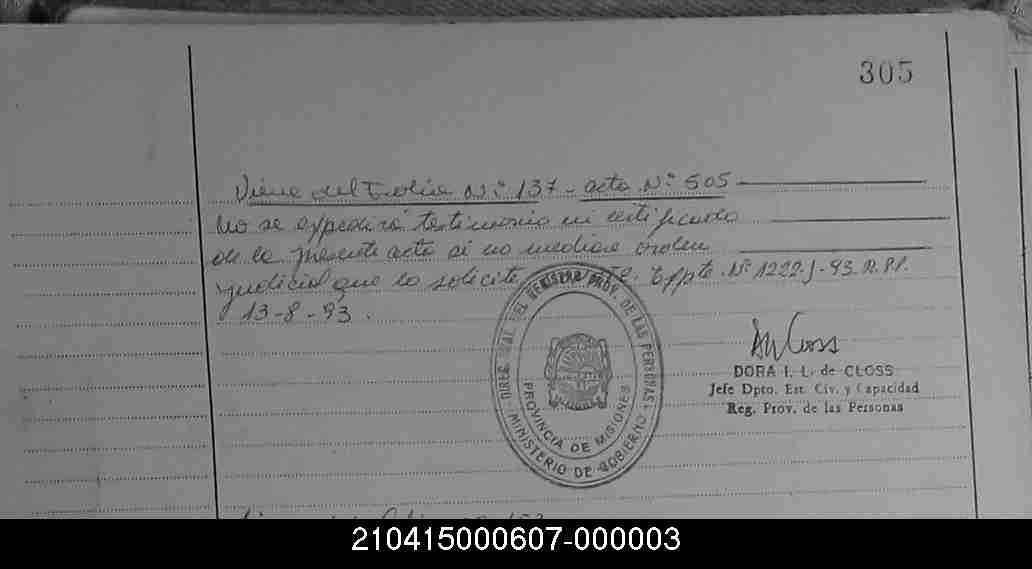 305
Viene del Folio Nº 137 - acta Nº 505
No se expedirá testimonio ni certificado
de la presente acta si no mediare orden
judicial que lo solicite Eppte. Nº 1222-J-93 R.P.P.
13-8-93.
DIREC. GRAL. DEL REGISTRO PROV. DE LAS PERSONAS
PROVINCIA DE MISIONES
MINISTERIO DE GOBIERNO
DORA I. L. de CLOSS
Jefe Dpto. Est. Civ. y Capacidad
Reg. Prov. de las Personas
210415000607-000003